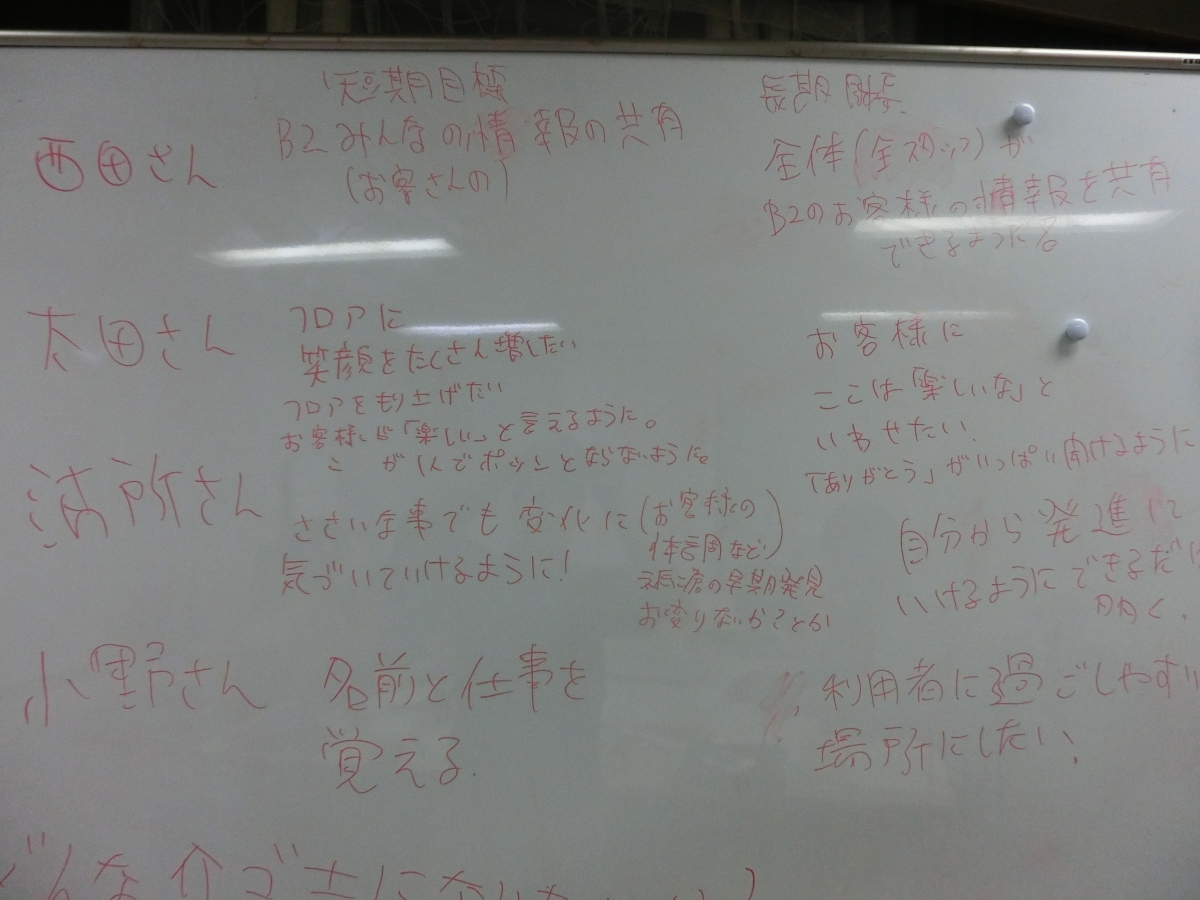 短期目標
長期目標
西田さん
B2みんなの情報の共有
(お客さんの)
全体(全スタッフ)が
B2のお客様の情報を共有
できるようになる
太田さん
フロアに
笑顔をたくさん増したい
フロアをもり上げたい
お客様が「楽しい」と言えるように。
ポツンとならないように。
お客様に
ここは「楽しいな」と
いわせたい.
「ありがとう」がいっぱい聞けるように
所さん
ささいな事でも変化に(お客様の
体調など)
気づいていけるように!
の早期発見
お変りないかことか
自分から発進して
いけるようにできるだけ
小野さん
名前と仕事を
覚える.
利用者に過ごしやすい
場所にしたい、
どんな介ゴ士になりたい